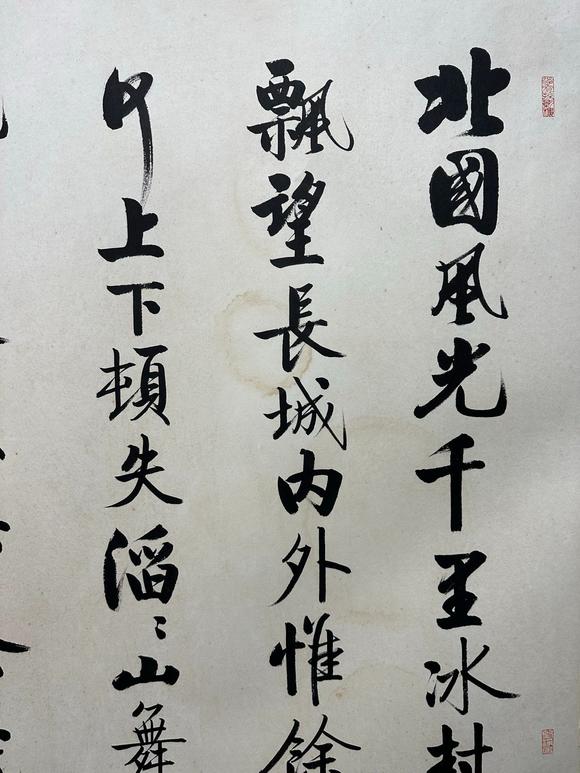 北國風光千里冰封
飄望長城内外惟餘
河上下頓失滔〻山舞